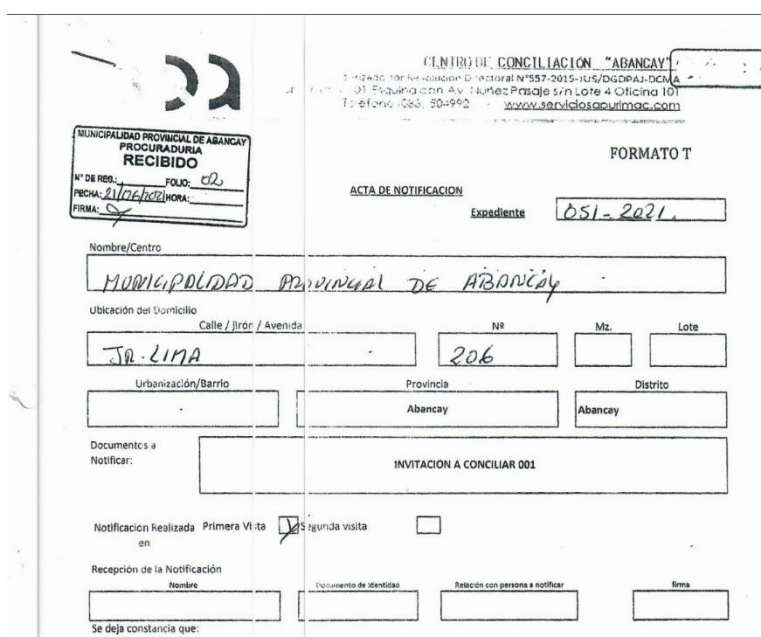 CENTRO DE CONCILIACIÓN "ABANCAY"
Directoral N°557-2015-JUS/DGDPAJ-DCMA
Esquina con Av. Nuñez Pasaje s/n Lote 4 Oficina 101
Teléfono 504992 www.serviciosapurimac.com
MUNICIPALIDAD PROVINCIAL DE ABANCAY
PROCURADURIA
RECIBIDO
N° DE REG.: FOLIO: 02
FECHA: 21/06/2021 HORA:
FIRMA:
FORMATO T
ACTA DE NOTIFICACION
Expediente 051-2021.
Nombre/Centro
MUNICIPALIDAD PROVINCIAL DE ABANCAY
Ubicación del Domicilio
Calle / Jirón / Avenida Nº Mz. Lote
JR. LIMA 206
Urbanización/Barrio Provincia Distrito
- Abancay Abancay
Documentos a
Notificar:
INVITACION A CONCILIAR 001
Notificación Realizada Primera Visita Segunda visita
en
Recepción de la Notificación
Nombre Documento de Identidad Relación con persona a notificar firma
Se deja constancia que: